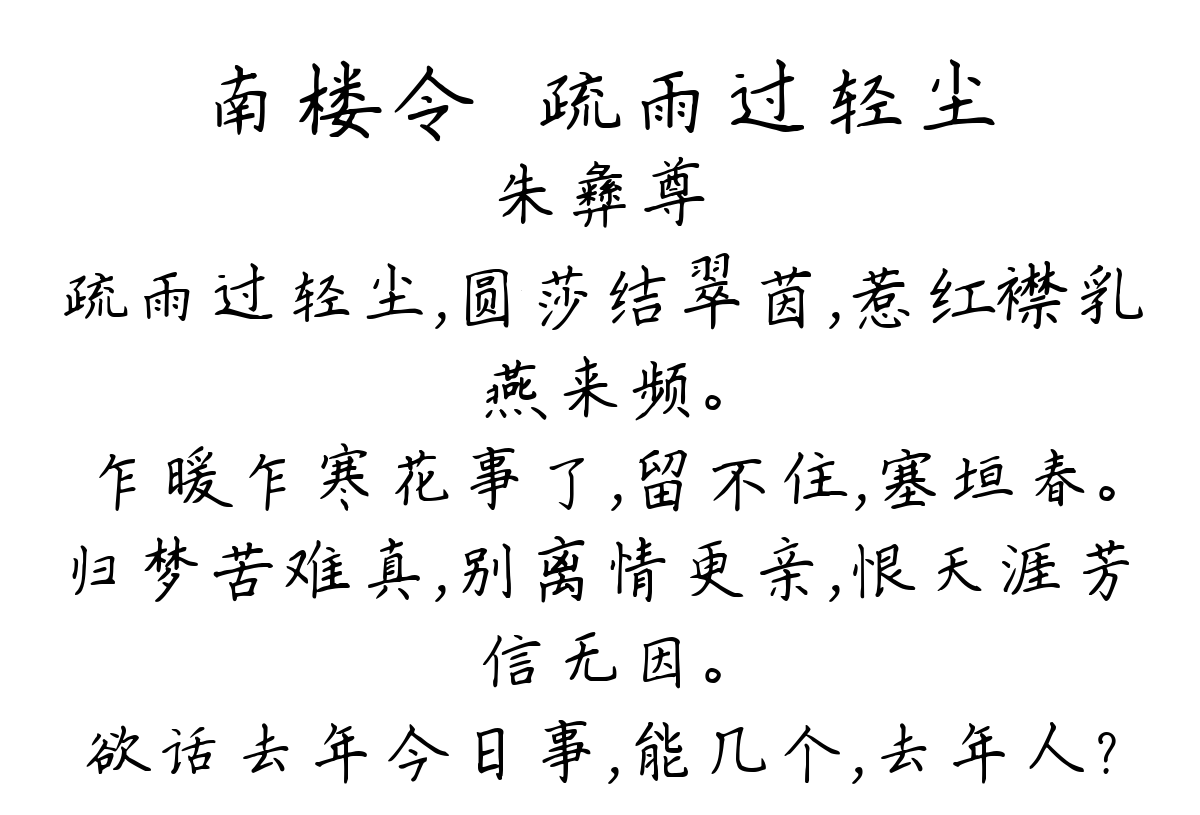 南楼令 疏雨过轻尘
朱彝尊
疏雨过轻尘,圆莎结翠茵,惹红襟乳
燕来频。
乍暖乍寒花事了,留不住,塞垣春。
归梦苦难真,别离情更亲,恨天涯芳
信无因。
欲话去年今日事,能几个,去年人?